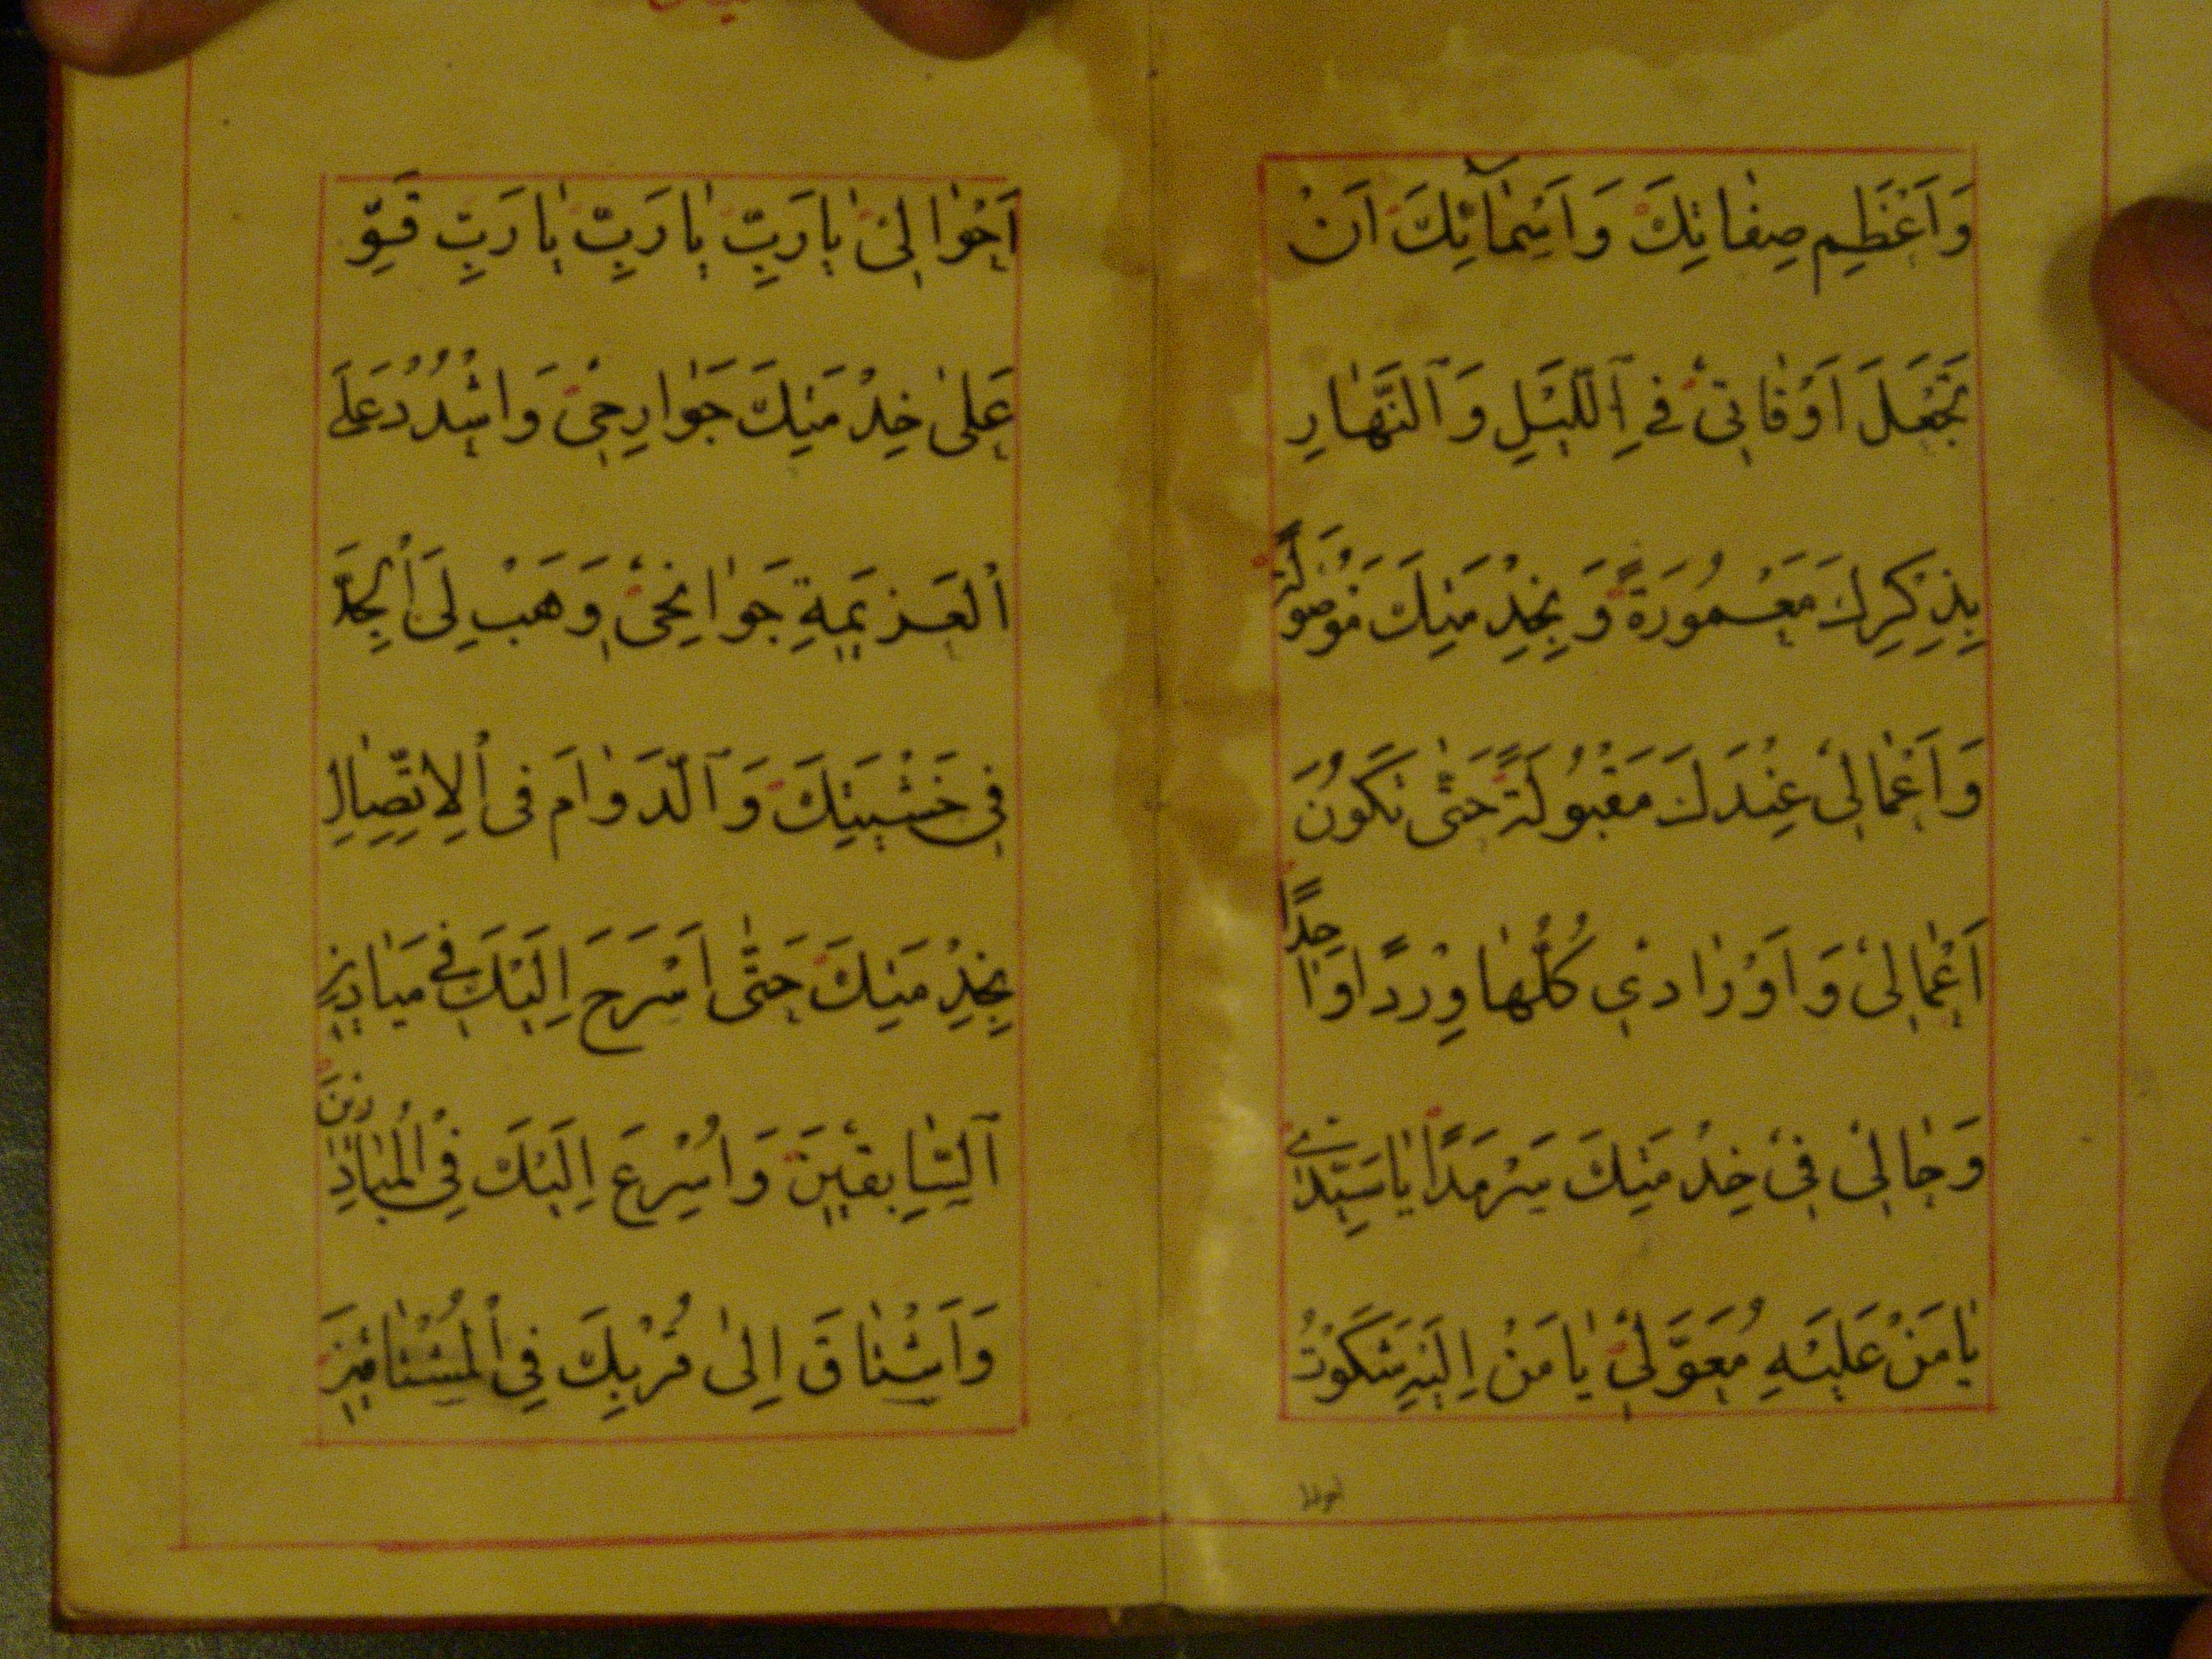 وَاَعْظَمِ صِفاتِكَ وَاَسْمآئِكَ اَنْ
تَجْعَلَ اَوْقاتى فِي اللَّيْلِ وَالنَّهارِ
بِذِكْرِكَ مَعْمُورَةً وَبِخِدْمَتِكَ مَوْصُولَةً
وَاَعْمالى عِنْدَكَ مَقْبُولَةً حَتّى تَكُونَ
اَعْمالى وَاَوْرادي كُلُّها وِرْدًا واحِدًا
وَحالى فى خِدْمَتِكَ سَرْمَدًا يا سَيِّدي
يا مَنْ عَلَيْهِ مُعَوَّلى يا مَنْ اِلَيْهِ شَكَوْتُ
اَحْوالى يا رَبِّ يا رَبِّ يا رَبِّ قَوِّ
عَلى خِدْمَتِكَ جَوارِحى وَاشْدُدْ عَلَى
الْعَزيمَةِ جَوانِحى وَهَبْ لِىَ الْجِدَّ
فى خَشْيَتِكَ وَالدَّوامَ فى الْاِتِّصالِ
بِخِدْمَتِكَ حَتّى اَسْرَحَ اِلَيْكَ في مَيادينِ
السّابِقينَ وَاُسْرِعَ اِلَيْكَ فِى الْمُبادِرينَ
وَاَشْتاقَ اِلى قُرْبِكَ فِى الْمُشْتاقينَ